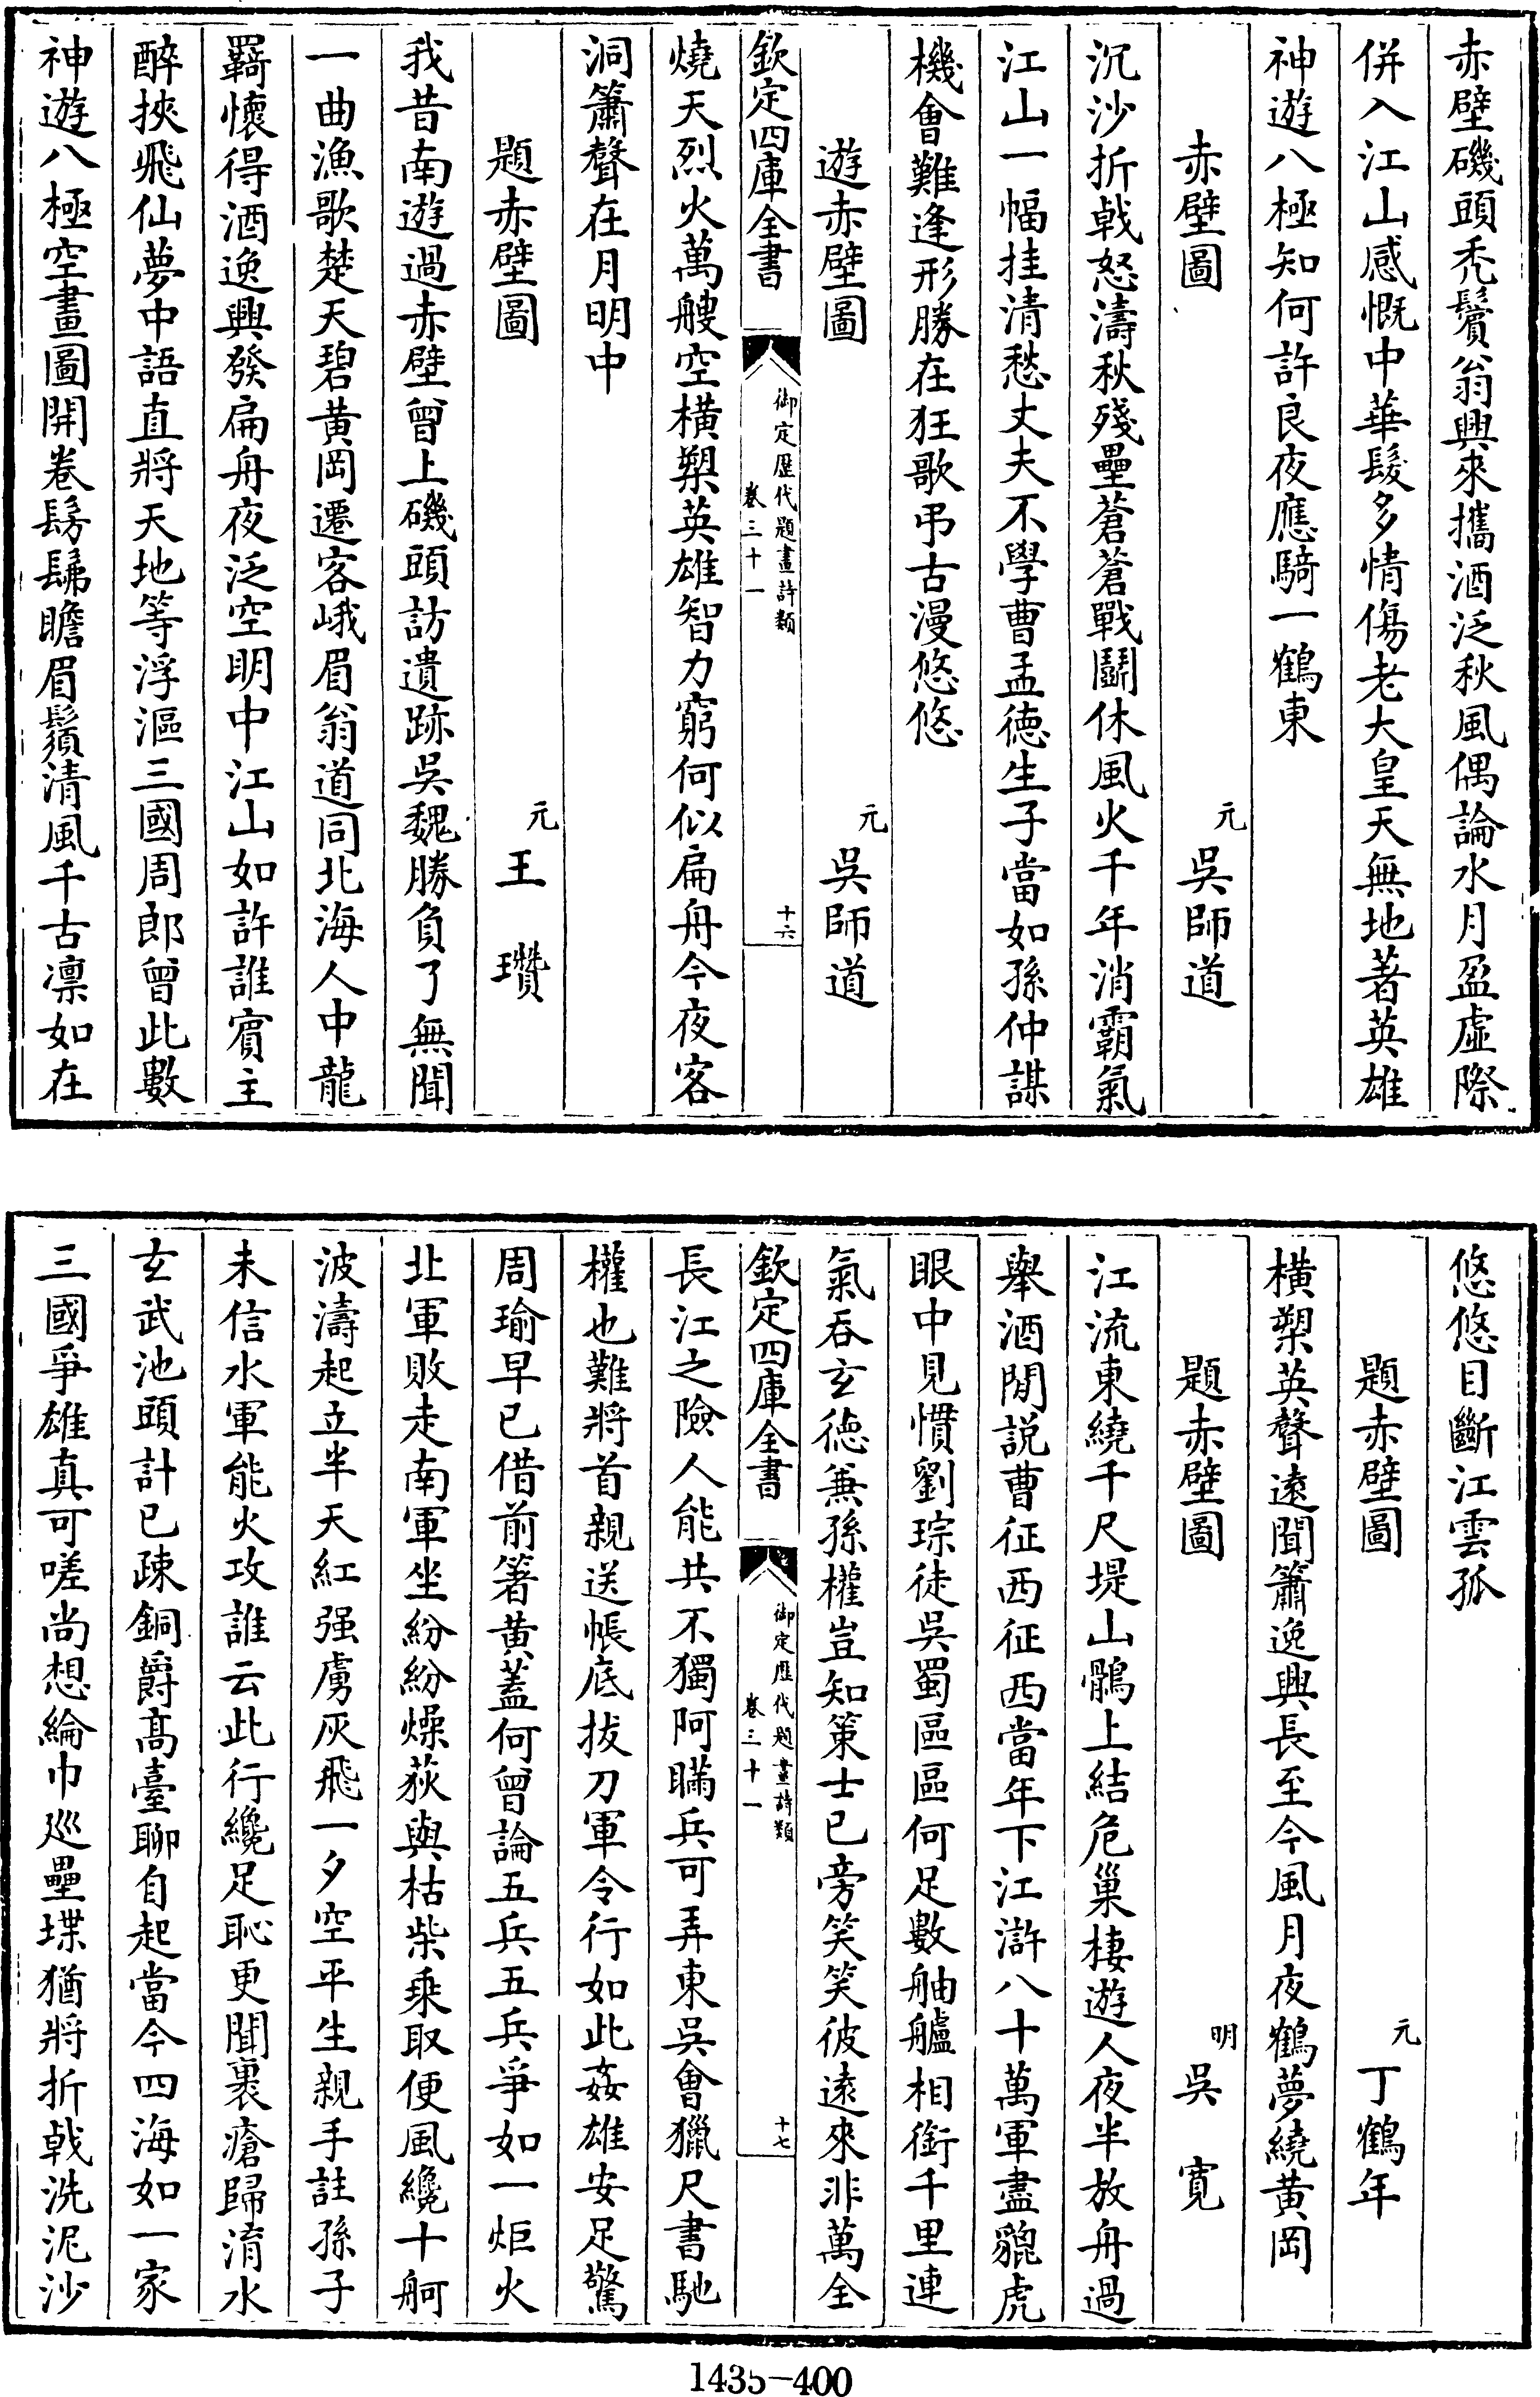 赤壁磯頭秃鬢翁興來攜酒泛秋風偶論水月盈虛際
併入江山感慨中華髮多情傷老大皇天無地著英雄
神遊八極知何許良夜應騎一鶴東
赤壁圖
元吳師道
沉沙折戟怒濤秋殘壘蒼蒼戰鬭休風火千年消霸氣
江山一幅挂清愁丈夫不學曹孟德生子當如孫仲謀
機會難逢形勝在狂歌弔古漫悠悠
遊赤壁圖
元吳師道
欽定四庫全書
御定歷代題畫詩類
卷三十一
十六
燒天烈火萬艘空橫槊英雄智力窮何似扁舟今夜客
洞簫聲在月明中
題赤壁圖
元王瓚
我昔南遊過赤壁曾上磯頭訪遺跡吳魏勝負了無聞
一曲漁歌楚天碧黃岡遷客峨眉翁道同北海人中龍
羇懷得酒逸興發扁舟夜泛空明中江山如許誰賓主
醉挾飛仙夢中語直將天地等浮漚三國周郎曾此數
神遊八極空畫圖開卷髣髴瞻眉鬚清風千古凛如在
悠悠目斷江雲孤
題赤壁圖
元丁鶴年
橫槊英聲遠聞簫逸興長至今風月夜鶴夢繞黃岡
題赤壁圖
明吳寬
江流東繞千尺堤山鶻上結危巢棲遊人夜半放舟過
舉酒閒説曹征西征西當年下江滸八十萬軍盡貔虎
眼中見慣劉琮徒吳蜀區區何足數舳艫相銜千里連
氣吞玄德兼孫權豈知策士已旁笑笑彼遠來非萬全
欽定四庫全書
御定歷代題畫詩類
卷三十一
十七
長江之險人能共不獨阿瞞兵可弄東吳會獵尺書馳
權也難將首親送帳底拔刀軍令行如此姦雄安足驚
周瑜早已借前箸黃蓋何曾論五兵五兵爭如一炬火
北軍敗走南軍坐紛紛燥荻與枯柴乘取便風纔十舸
波濤起立半天紅强虜灰飛一夕空平生親手註孫子
未信水軍能火攻誰云此行纔足恥更聞裹瘡歸淯水
玄武池頭計已疎銅爵髙臺聊自起當今四海如一家
三國爭雄真可嗟尚想綸巾巡壘堞猶將折戟洗泥沙
1435-400